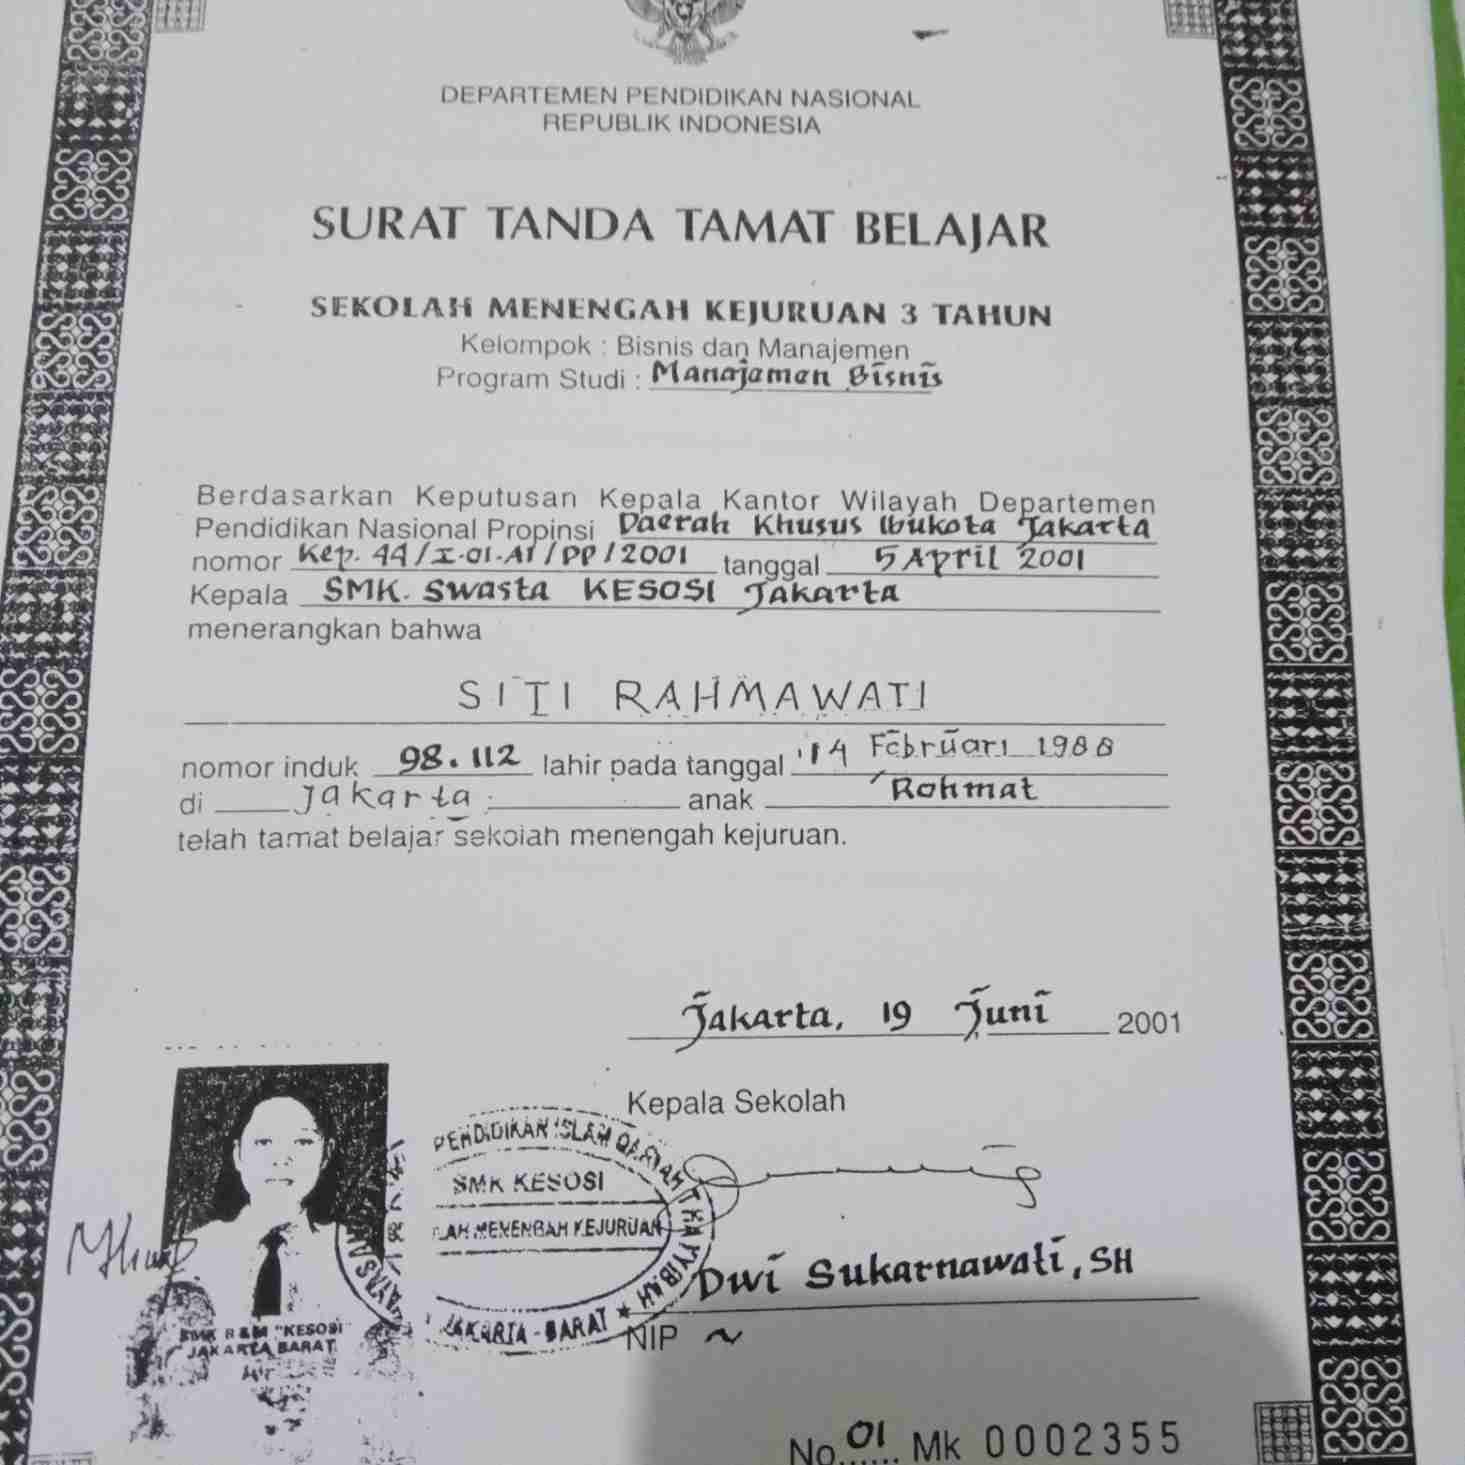 DEPARTEMEN PENDIDIKAN NASIONAL
REPUBLIK INDONESIA
SURAT TANDA TAMAT BELAJAR
SEKOLAH MENENGAH KEJURUAN 3 TAHUN
Kelompok : Bisnis dan Manajemen
Program Studi : Manajemen Bisnis
Berdasarkan Keputusan Kepala Kantor Wilayah Departemen
Pendidikan Nasional Propinsi Daerah Khusus Ibukota Jakarta
nomor Kep. 44/I.01.A1/PP/2001 tanggal 5 April 2001
Kepala SMK. Swasta KESOSI Jakarta
menerangkan bahwa
SITI RAHMAWATI
nomor induk 98.112 lahir pada tanggal 14 Februari 1988
di Jakarta anak Rohmat
telah tamat belajar sekolah menengah kejuruan.
Jakarta, 19 Juni 2001
Kepala Sekolah
PENDIDIKAN ISLAM
SMK KESOSI
LAH MENENGAH KEJURUAN
YAYASAN
JAKARTA - BARAT
Dwi Sukarnawati, SH
NIP ~
SMK B & M "KESOSI"
JAKARTA BARAT
No. 01 Mk 0002355